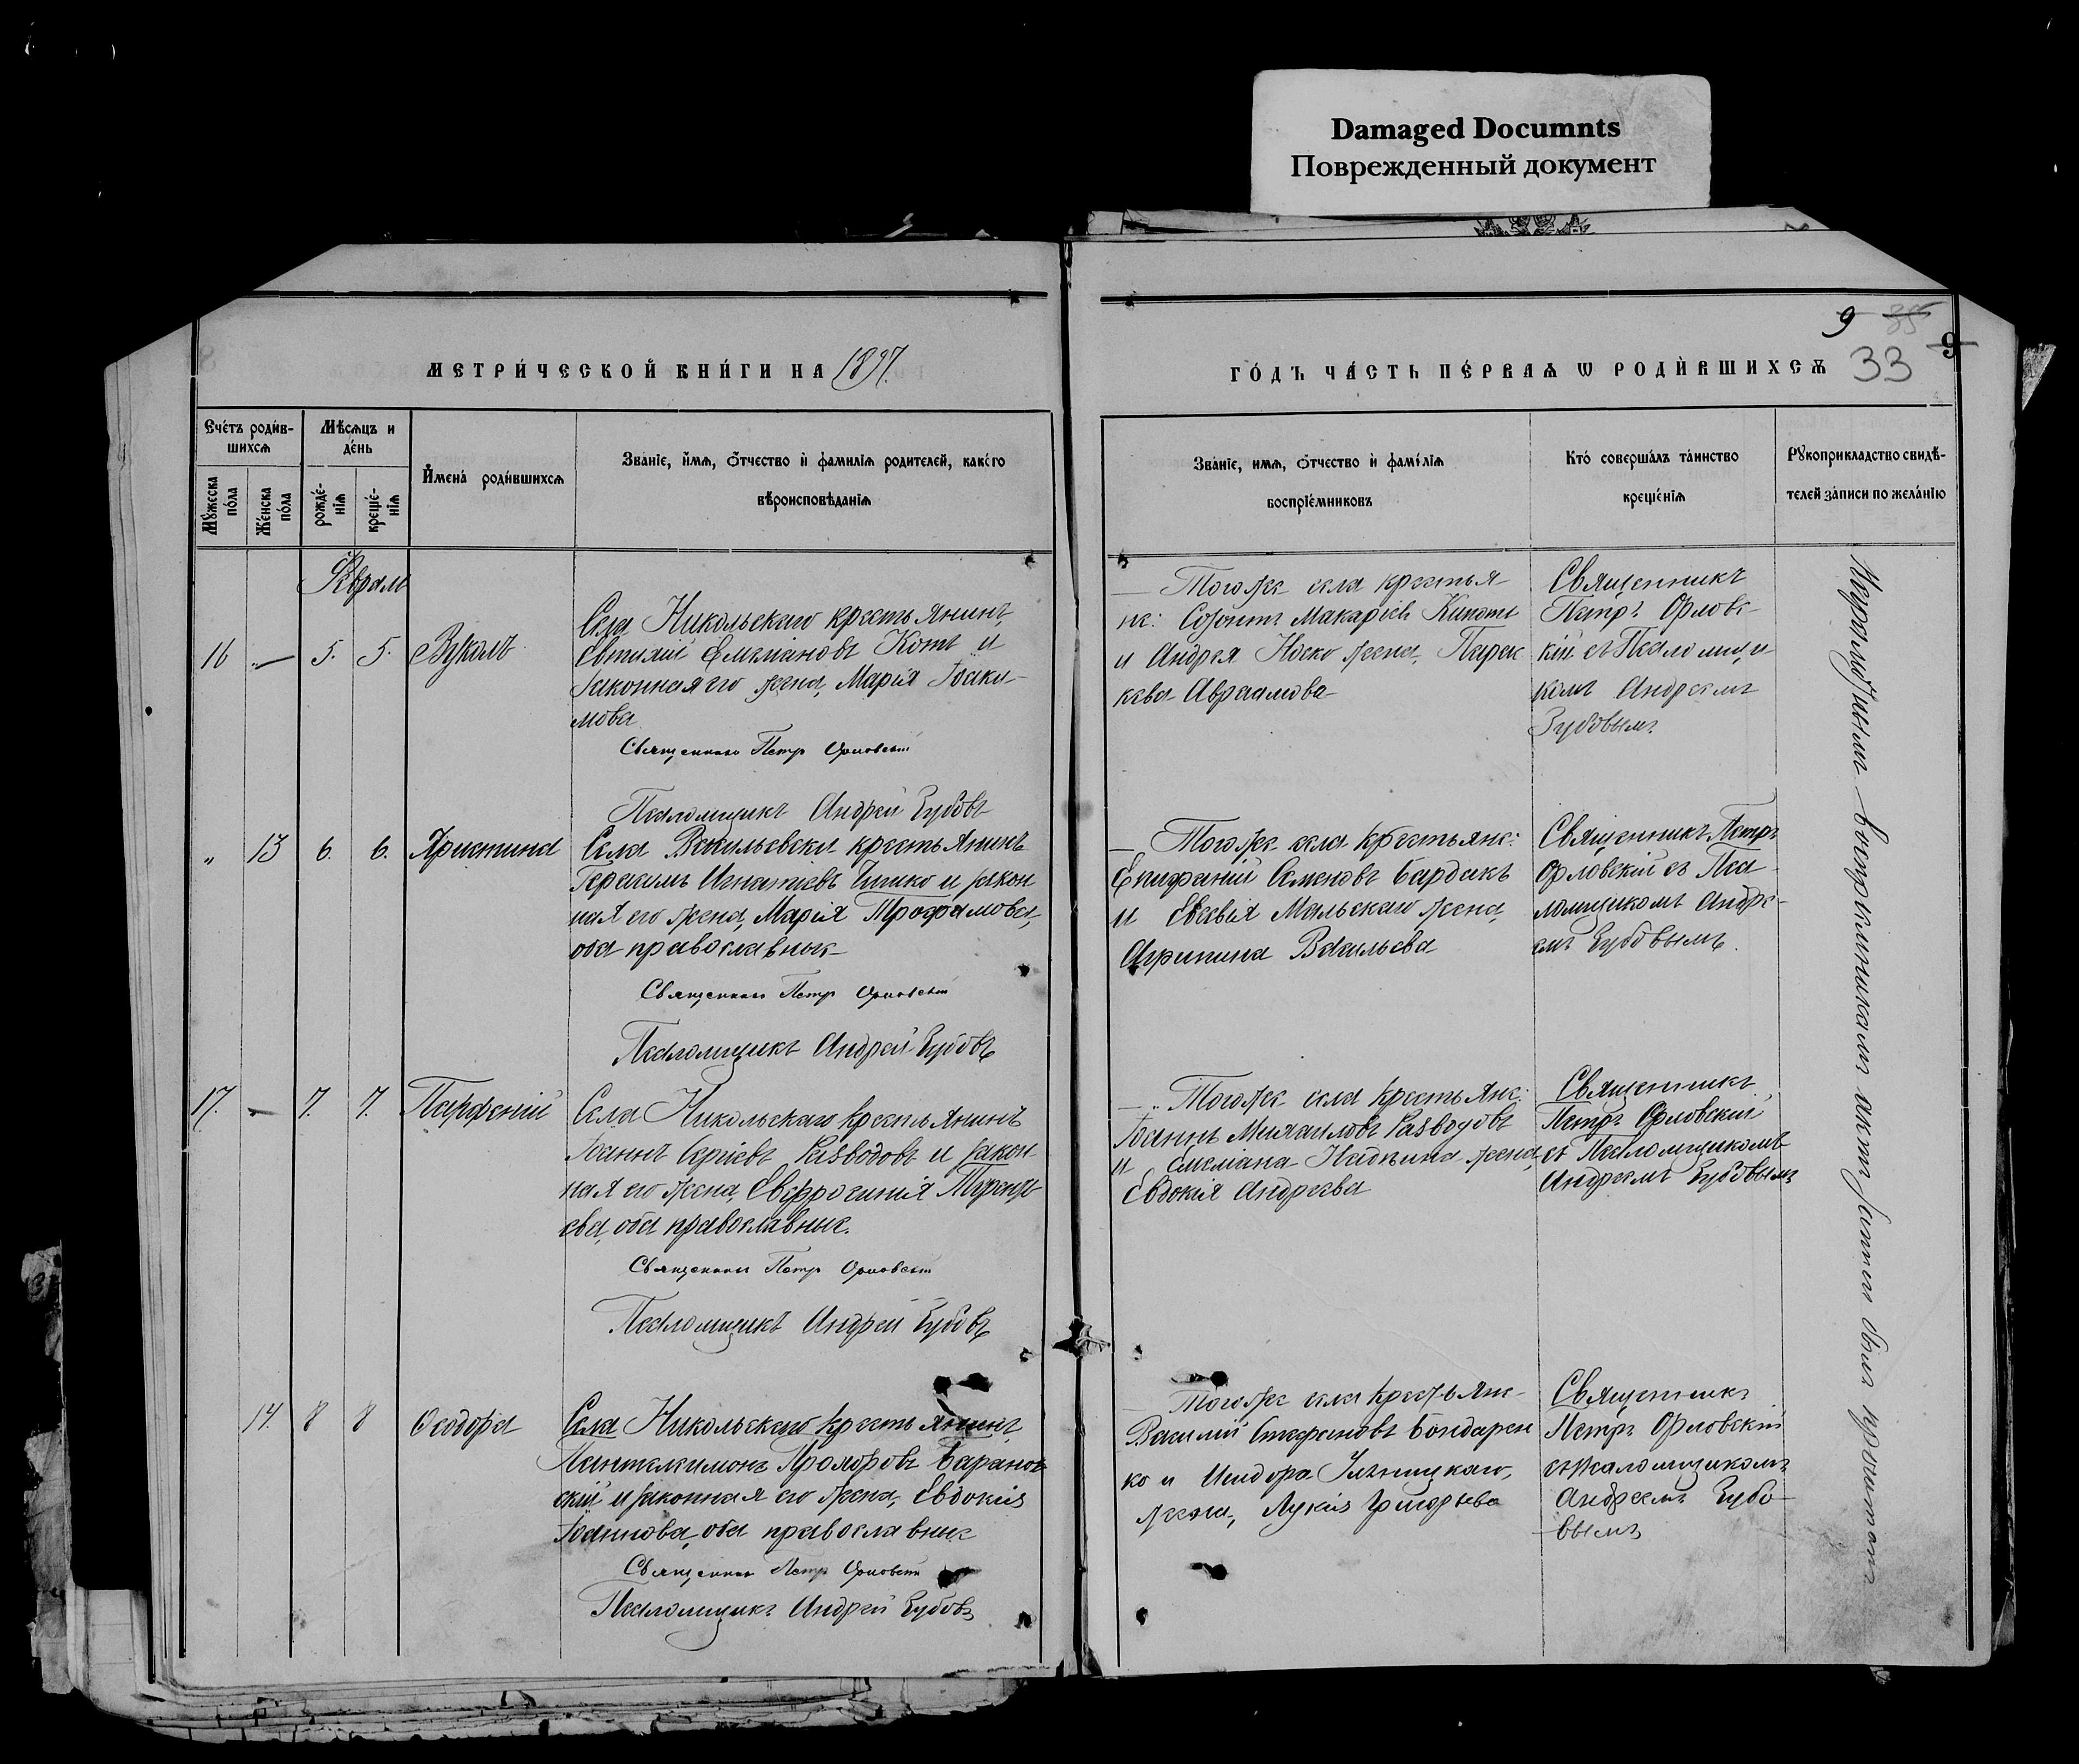 Damaged Documnts
Поврежденный документ
9 35
33
9
МЕТРИ́ЧЕСКОЙ КНИ́ГИ НА 1897.
ГО́ДЪ ЧА́СТЬ ПЕ́РВАѦ Ѡ РОДИ́ВШИХСѦ
Сче́тъ роди́в-
шихсѧ
Мꙋ́жеска
по́ла
Же́нска
по́ла
Мѣ́сѧцъ и
де́нь
рожде́-
нїѧ
креще́-
нїѧ
И҆мена̀ роди́вшихсѧ
Зва́нїе, и҆́мѧ, ѻ҆́тчество и҆ фамилїѧ родителей, како́го
вѣроисповѣданїѧ
Зва́нїе, имѧ, ѻ҆́тчество и҆ фами́лїѧ
воспрїе́мниковъ
Кто́ соверша́лъ та́инство
креще́нїѧ
Рꙋкоприкладство свидѣ́-
телей за́писи по жела́нїю
Февраль
16 „ 5. 5. Вуколъ
Села Никольскаго крестьянинъ
Евтихій Емеліановъ Котъ и
законная его жена, Марія Іоаки-
мова
Священникъ Петръ Орловскій
Псаломщикъ Андрей Зубовъ
Тогоже села крестья-
не: Макаріевъ
и Андрея Носко жена, Парас
кева Авраамова
Священникъ
Петръ Орловс-
кій съ Псаломщи
комъ Андреемъ
Зубовымъ
„ 13 6. 6. Христина
Села Васильевки крестьянинъ
Герасимъ Игнатіевъ и закон
ная его жена, Марія
оба православные
Священникъ Петръ Орловскій
Псаломщикъ Андрей Зубовъ
Тогоже села крестьяне:
Епифаній Семеновъ Бардакъ
и Евсевія Мальскаго жена,
Агрипина Васильева
Священникъ Петръ
Орловскій съ Пса
ломщикомъ Андре-
емъ Зубовымъ.
17. 7. 7. Парфеній
Села Никольскаго крестьянинъ
Іоаннъ Сергіевъ Разводовъ и закон
ная его жена, Евфросинія Терентъ
ева, оба православные.
Священникъ Петръ Орловскій
Псаломщикъ Андрей Зубовъ
Тогоже села крестьяне:
Іоаннъ Михаиловъ Разводовъ
и Емеліана жена,
Евдокія Андреева
Священникъ
Петръ Орловскій
съ Псаломщикомъ
Андреемъ Зубовымъ
14 8 8 Ѳеодора
Села Никольскаго крестьянинъ
Пантелеимонъ Прохоровъ Баранов
скій и законная его жена, Евдокія
Іоаннова, оба православные
Священникъ Петръ Орловскій
Псаломщикъ Андрей Зубовъ
Тогоже села крестьяне
Василій Стефановъ Бондарен
ко и Исидора
жена, Лукія Григорьева
Священникъ
Петръ Орловскій
съ Псаломщикомъ
Андреемъ Зубо-
вымъ
воспріемникамъ записи былъ прочитанъ